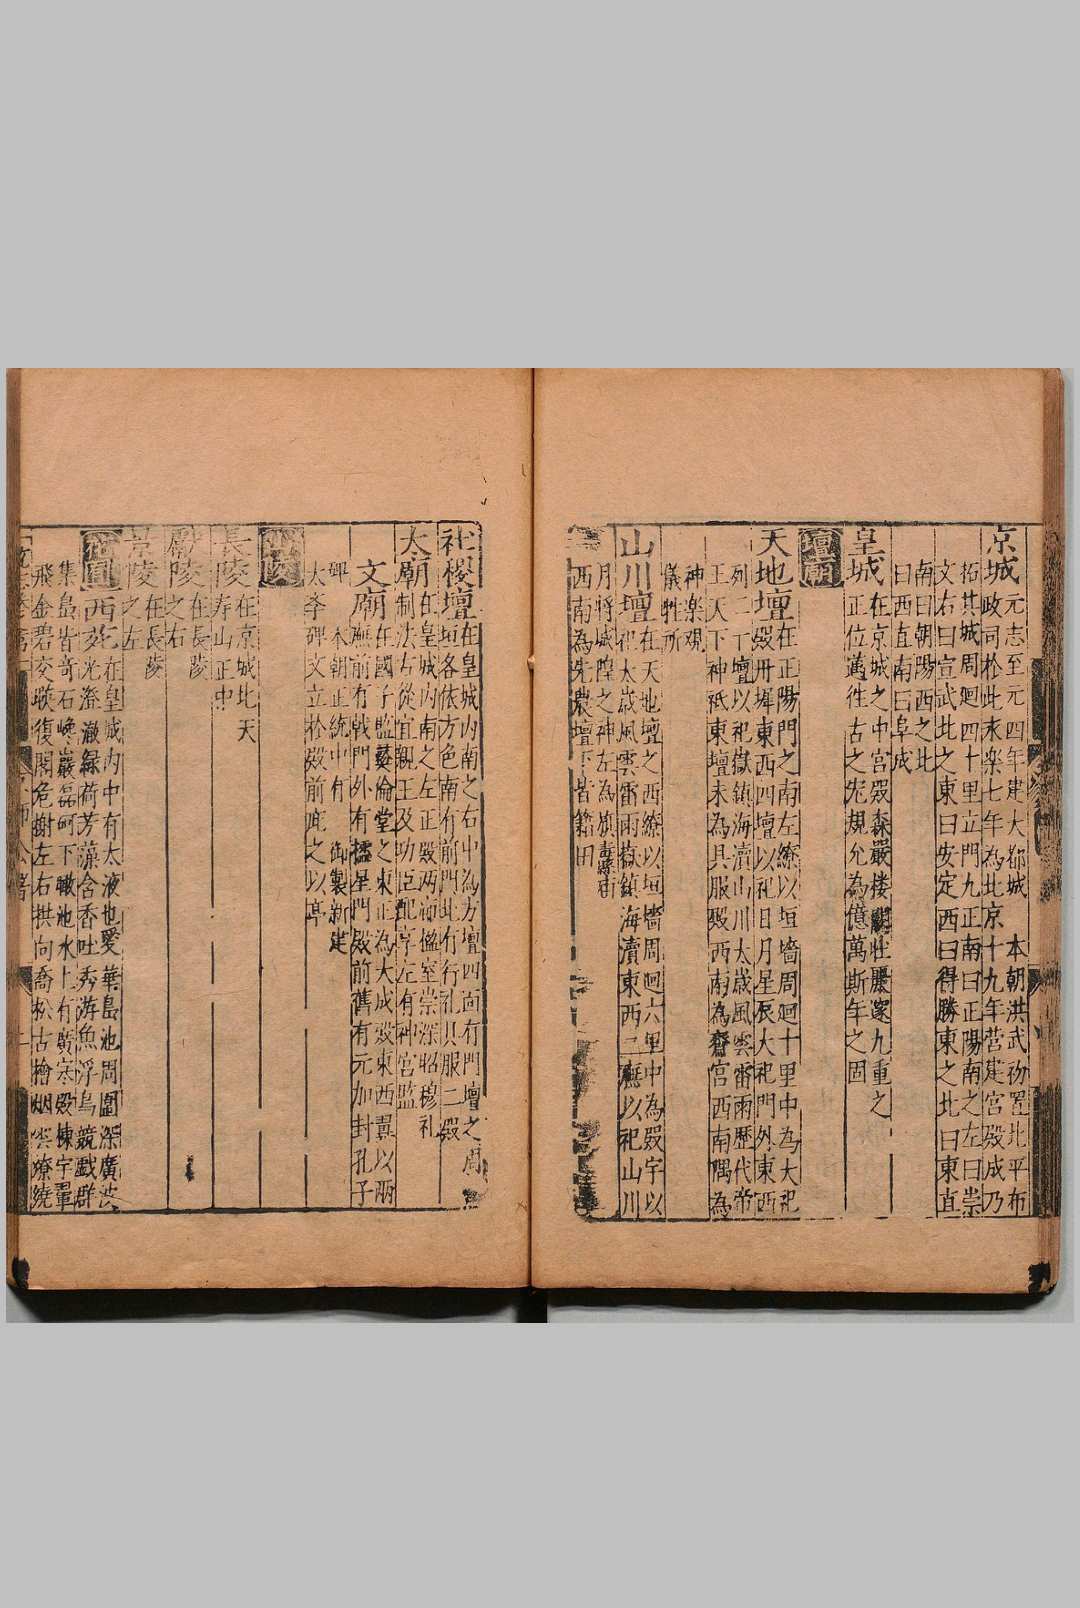 京城
元志至元四年建大都城　本朝洪武初置北平布
政司於此永樂七年為北京十九年营建宮殿成乃
拓其城周廻四十里立門九正南曰正陽南之左曰崇
文右曰宣武北之東曰安定西曰得勝東之北曰東直
南曰朝陽西之北
曰西直南曰阜成
皇城
在京城之中宮殿森嚴楼
正位萬年之固
壇廟
天地壇
在正陽門之南左繚以垣墻周廻十里中為大祀
殿丹墀東西四壇以祀日月星辰大祀門外東西
列二十壇以祀嶽鎮海瀆山川太歲風雲雷雨歷代帝
王天下神祗東壇末為具服殿西南為齋宮西南隅為
神楽观
儀牲所
山川壇
在天地壇之西繚以垣墻周廻六里中為殿宇以
祀太歲風雲雷雨嶽鎮海瀆東西二廡以祀山川
月将城隍之神左為旗纛廟
西南為先農壇下皆籍田
社稷壇
在皇城内南之右中為方壇四面有門壇之周
垣各依方色南有前門北有行礼具服二殿
太廟
在皇城内南之左正殿两
制法古從宜親王及功臣配享左有神宫監
文廟
在國子監彝倫堂之東正為大成殿東西
廡前有戟門外有櫺星門殿前舊有元加封孔子
碑　本朝正統中有　御製新建
太学碑文立於殿前
陵
長陵
在京城北天
寿山正中
獻陵
在長陵
之右
景陵
在長陵
之左
苑囿
西苑
在皇城内中有太液池
光澄澈緑荷芳藻含香吐秀游魚浮鳥競戲群
集島皆奇石巉巖磊砢下瞰池水上有廣寒殿棟宇翬
飛金碧交映復閣危榭左右拱向喬松古檜烟雲繚繞